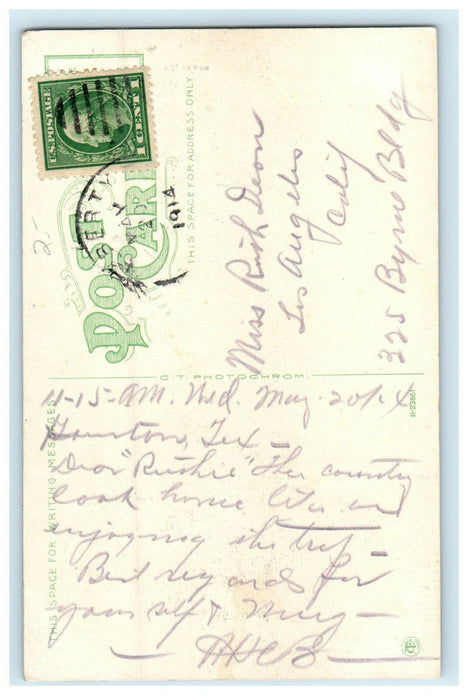 U.S. POSTAGE
1 CENT 1
BERTY
1914
POST CARD
THIS SPACE FOR ADDRESS ONLY.
2-
Miss Ruth Deon
Los Angeles
Calif
325 Byrne Bldg
C. T. PHOTOCHROM.
R-23861
THIS SPACE FOR WRITING MESSAGES
11-15- AM. Wed. May. 20th
Houston, Tex -
Dear "Ruthie" The country
look home like am
enjoying the trip -
Best regards for
your self &